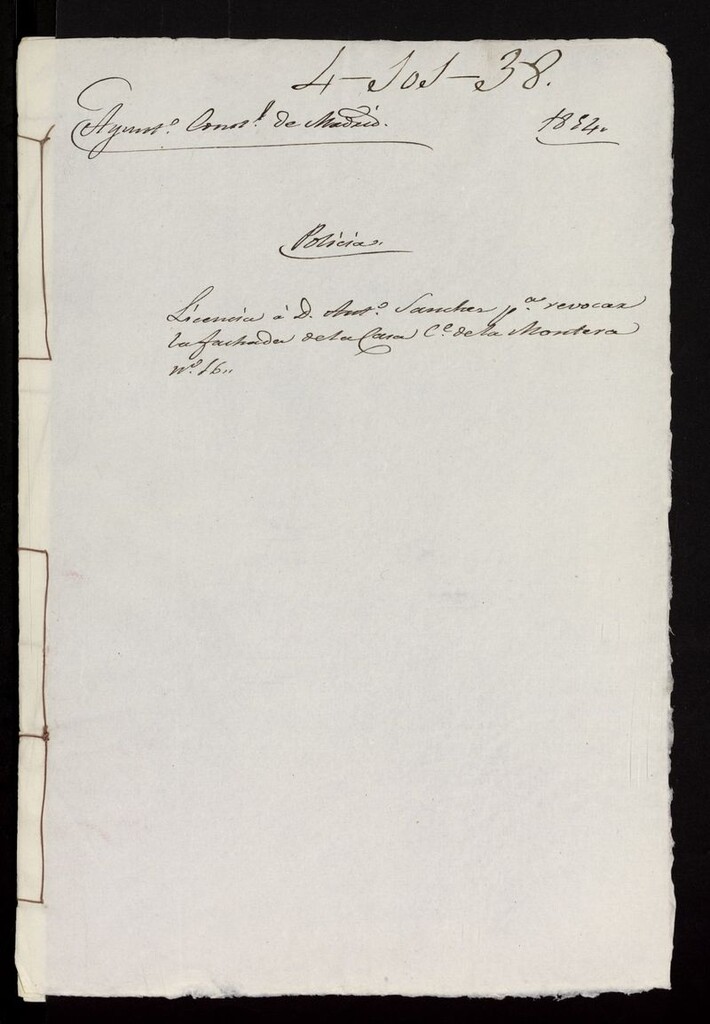 4-101-38.
Ayunt.º Const.l de Madrid. 1854.
Policia.
Licencia à D. Ant.º Sanchez p.a revocar
la fachada de la Casa C.e de la Montera
n.º 16..